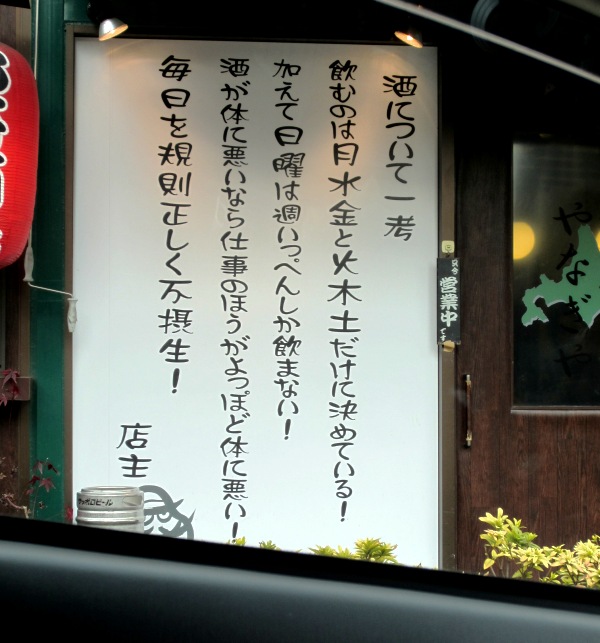 酒について一考
飲むのは月水金と火木土だけに決めている！
加えて日曜は週いっぺんしか飲まない！
酒が体に悪いなら仕事のほうがよっぽど体に悪い！
毎日を規則正しく不摂生！
店主
営業中
やなぎや